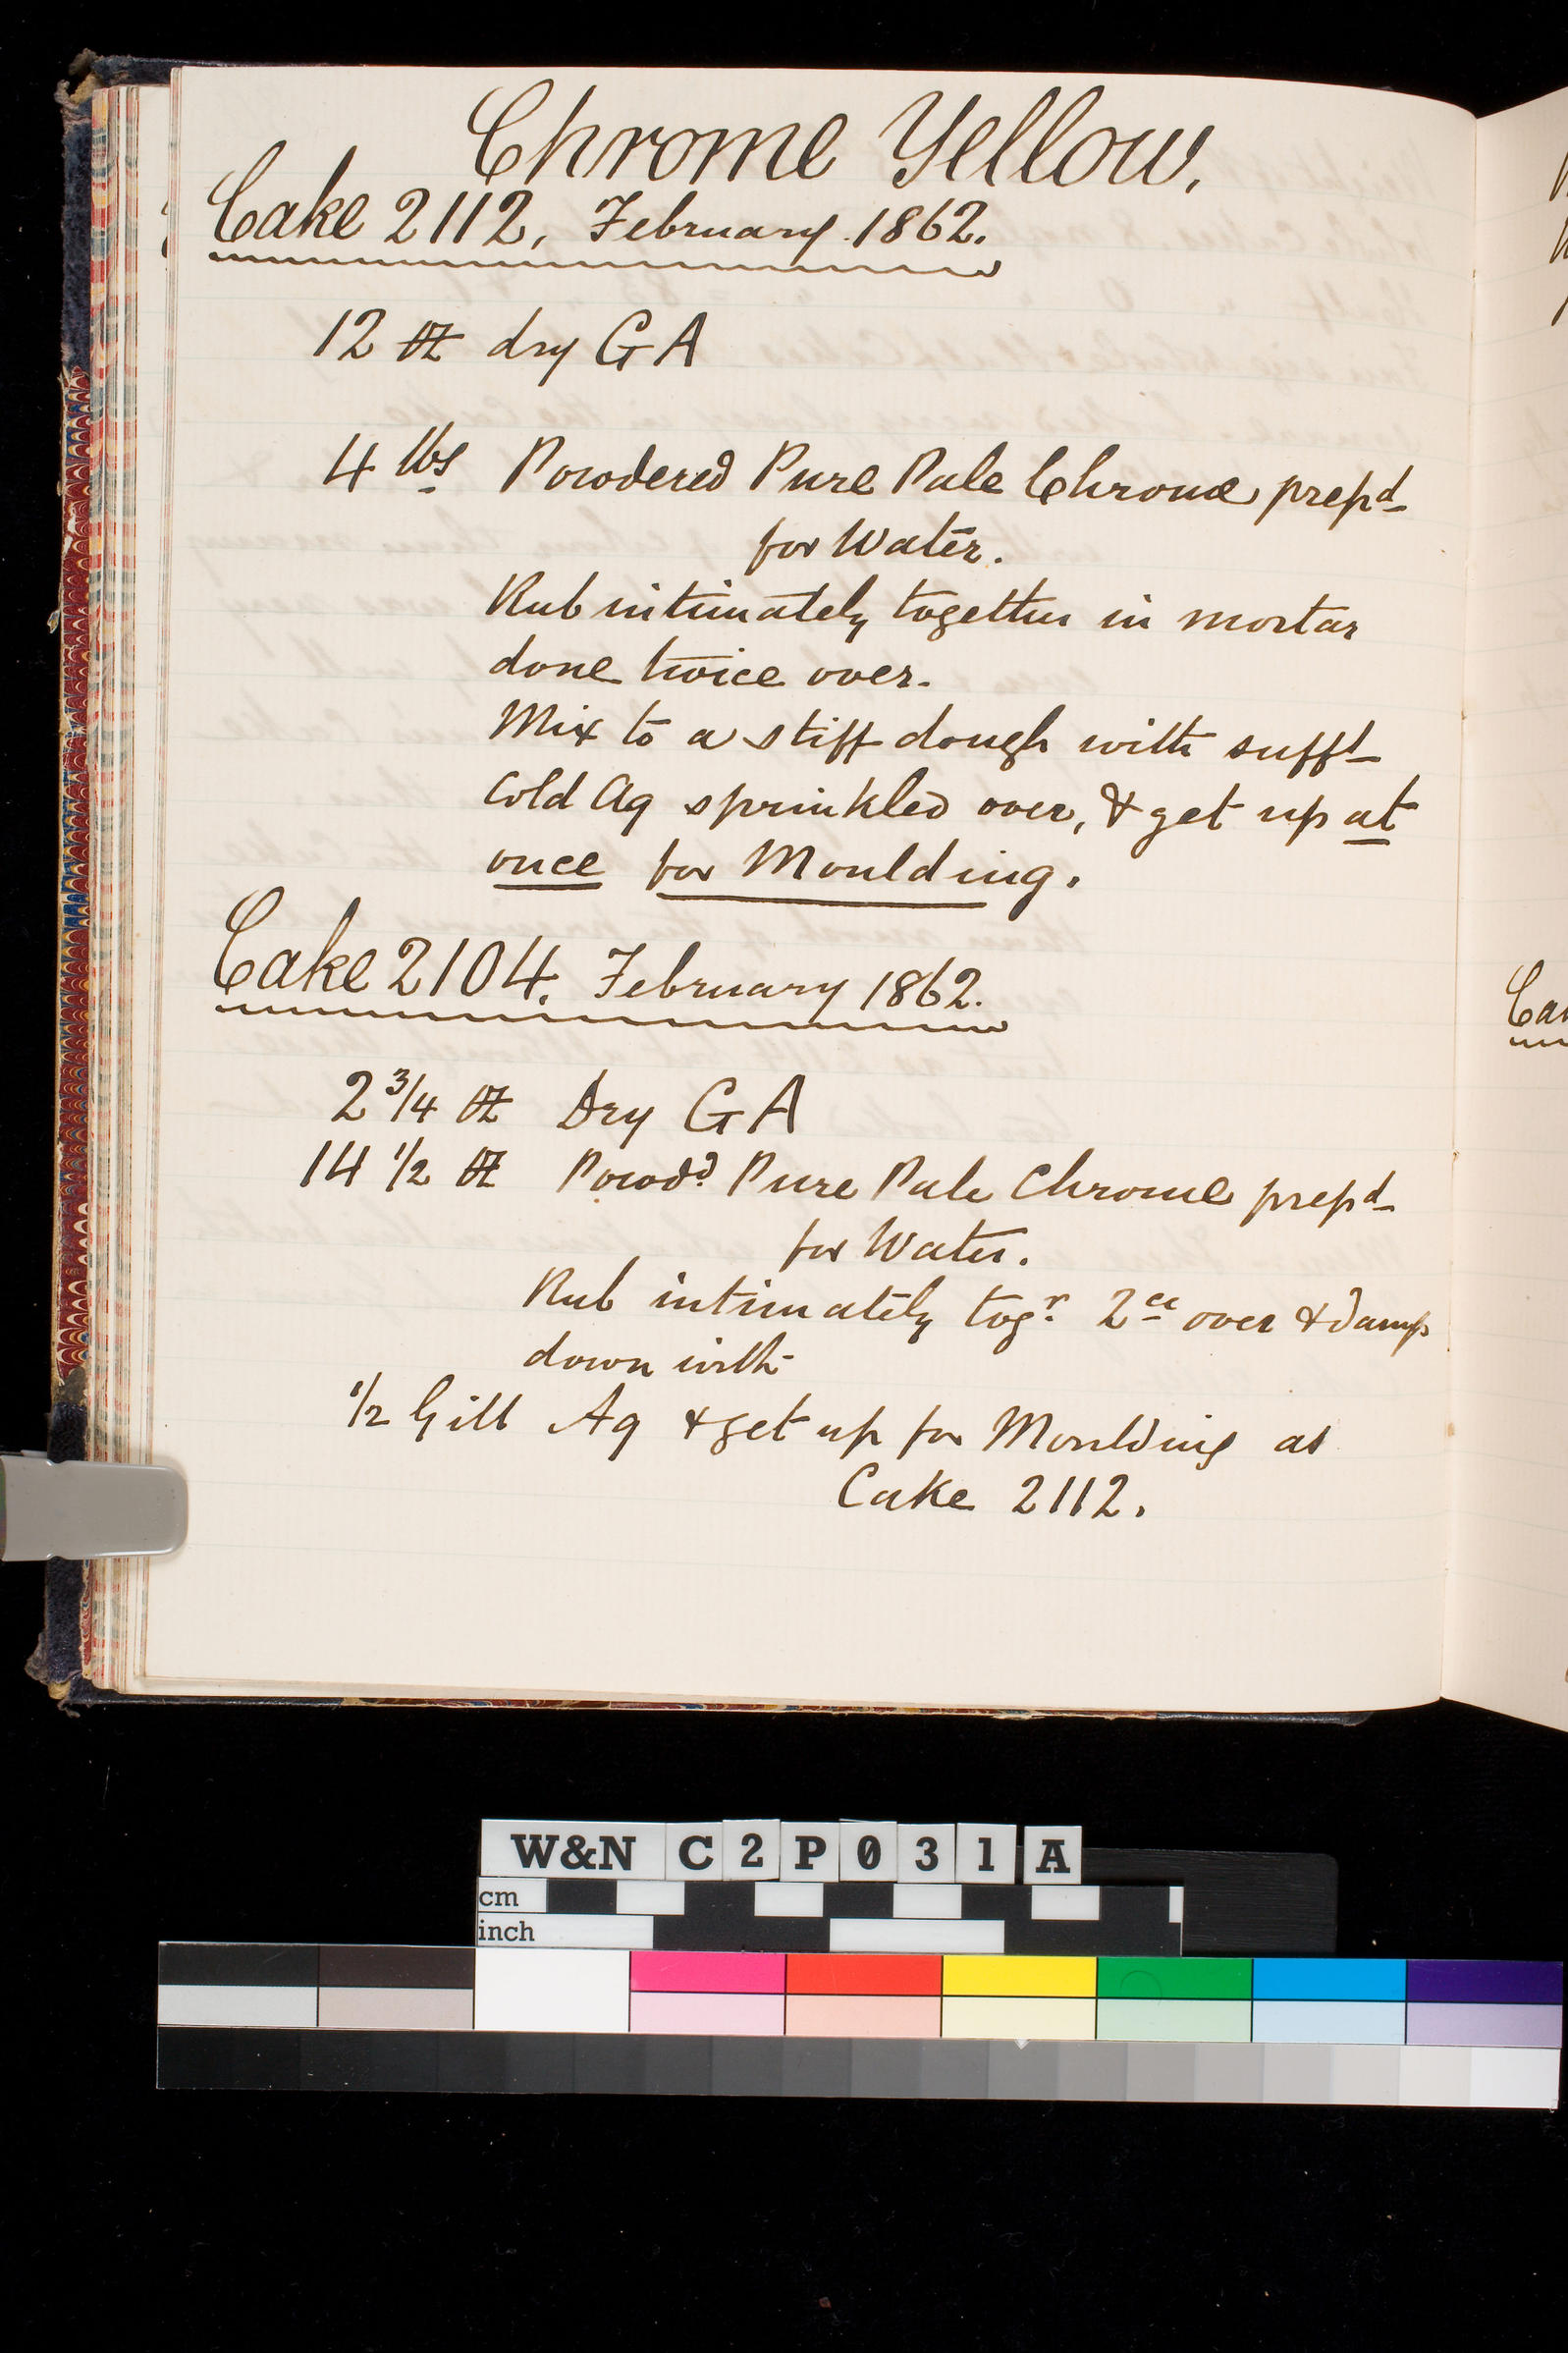 Chrome Yellow.
Cake 2112, February 1862.
12 oz dry G A
4 lbs Powdered Pure Pale Chrome prepd
for Water.
Rub intimately together in mortar
done twice over.
Mix to a stiff dough with sufft
cold Aq sprinkled over, & get up at
once for Moulding.
Cake 2104. February 1862.
2 3/4 oz Dry G A
14 1/2 oz Powdd Pure Pale Chrome prepd
for Water.
Rub intimately togr 2ce over & damp
down with
1/2 Gill Aq & get up for Moulding as
Cake 2112.
Ca
W&N C2P031A
cm
inch